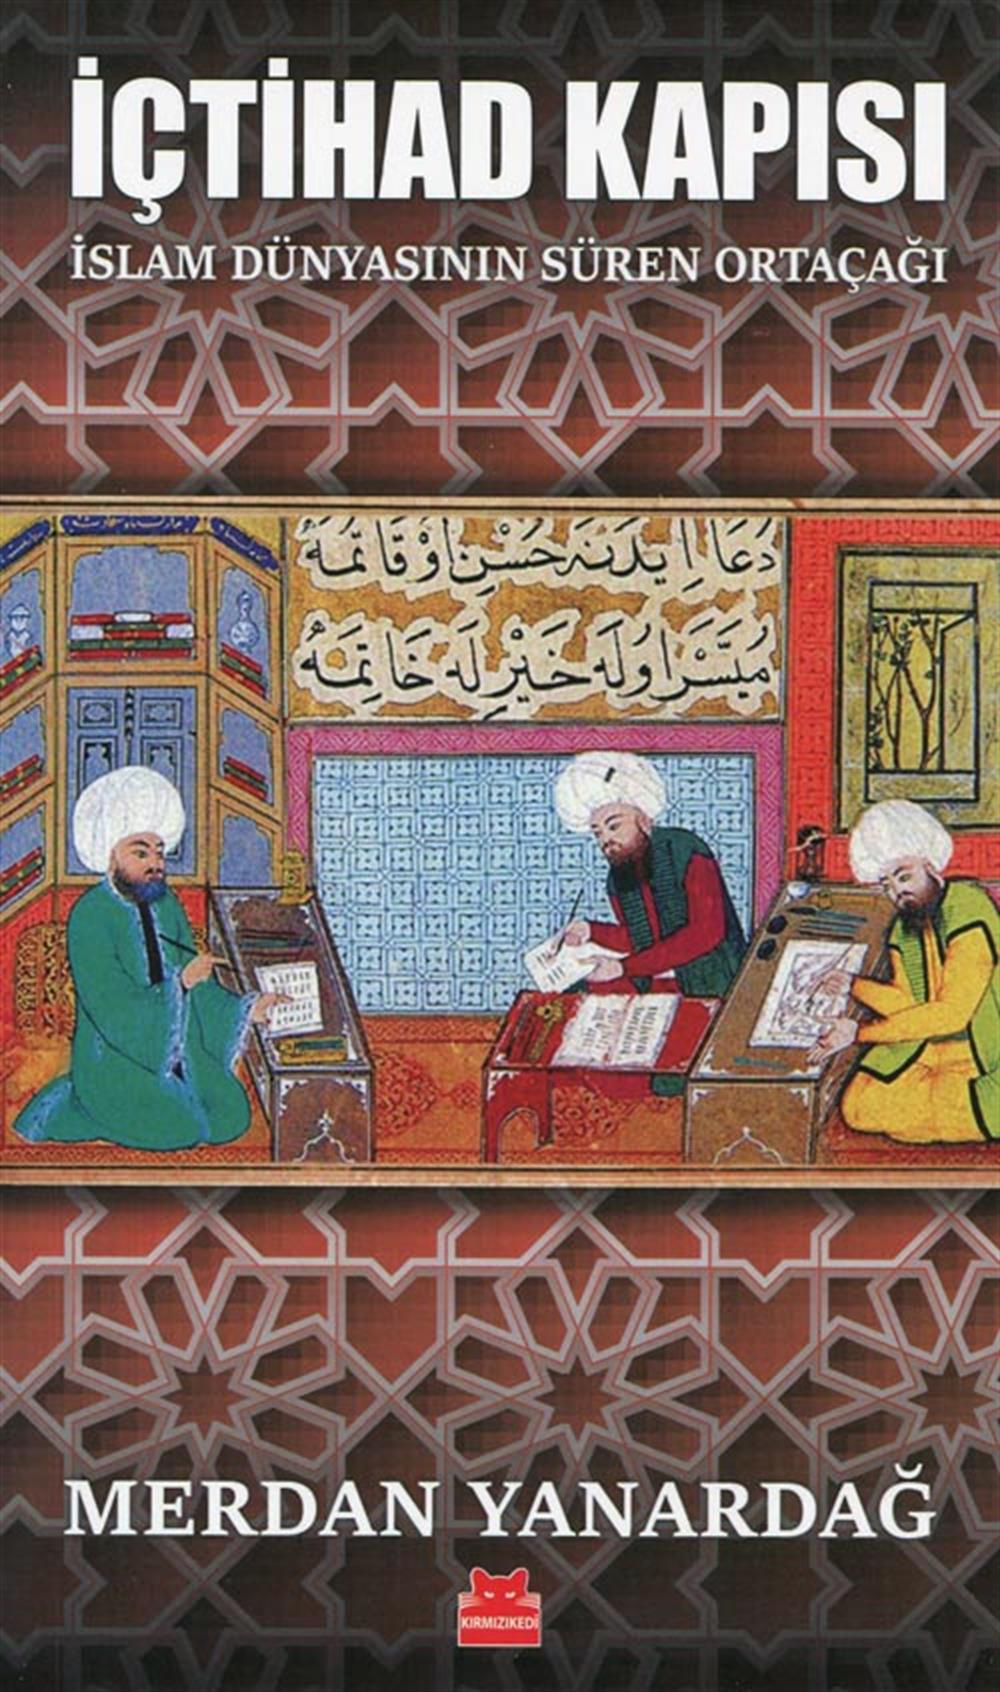 İÇTİHAD KAPISI
İSLAM DÜNYASININ SÜREN ORTAÇAĞI
دُعَا اِيدَنَهْ حُسْنِ اَوْقَاتِمَهْ
مُيَسَّرْ اوُلَهْ خَيْرِلَهْ خَاتِمَهْ
MERDAN YANARDAĞ
KIRMIZIKEDİ